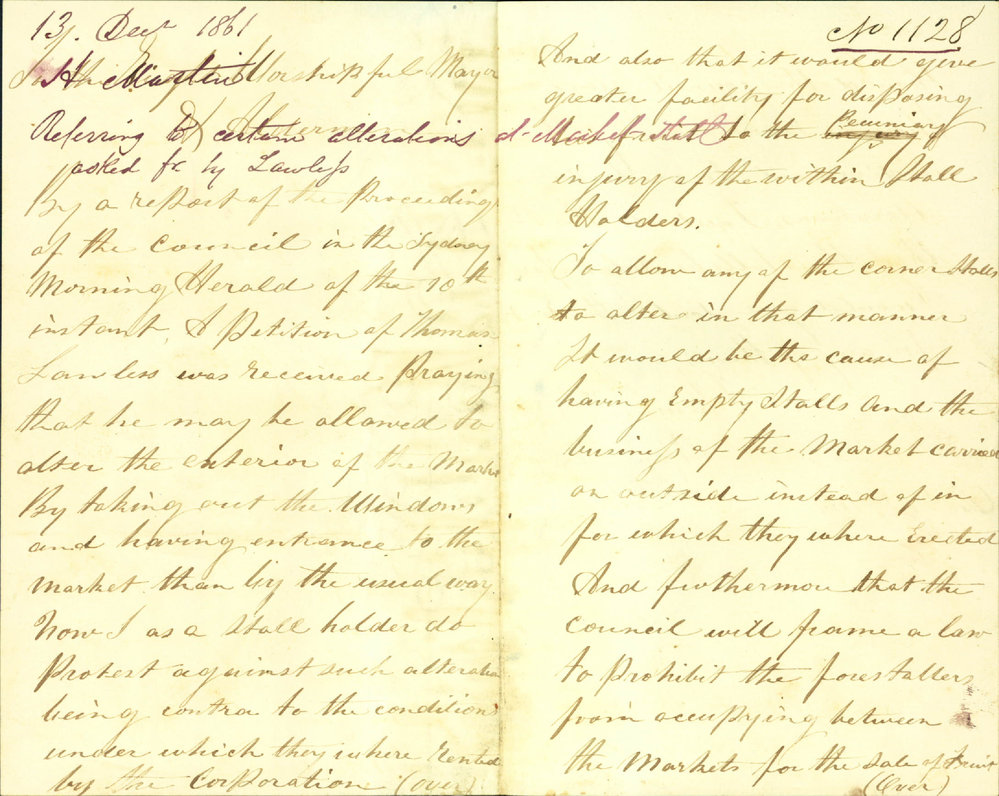 13/. Decr 1861
To the Right Worshipful Mayor
H. Martin
Aldermen
Referring to certain alterations of Market stall
asked for by Lawless
By a report of the Proceedings
of the council in the Sydney
Morning Herald of the 10th
instant, A Petition of Thomas
Lawless was received Praying
that he may be allowed to
alter the exterior of the Market
By taking out the Windows
and having entrance to the
market than by the usual way.
Now I as a Stall holder do
Protest against such alteration
being contra to the condition
under which they where Rented
by the Corporation (over)
No 1128
And also that it would give
greater facility for disposing
to the Pecuniary
injury of the within Stall
Holders.
To allow any of the corner Stalls
to alter in that manner
It would be the cause of
having Empty Stalls And the
business of the Market carried
on outside instead of in
for which they where Erected
And furthermore that the
Council will frame a law
to Prohibit the forestallers
from occupying between
the Markets for the Sale of Fruit
(Over)